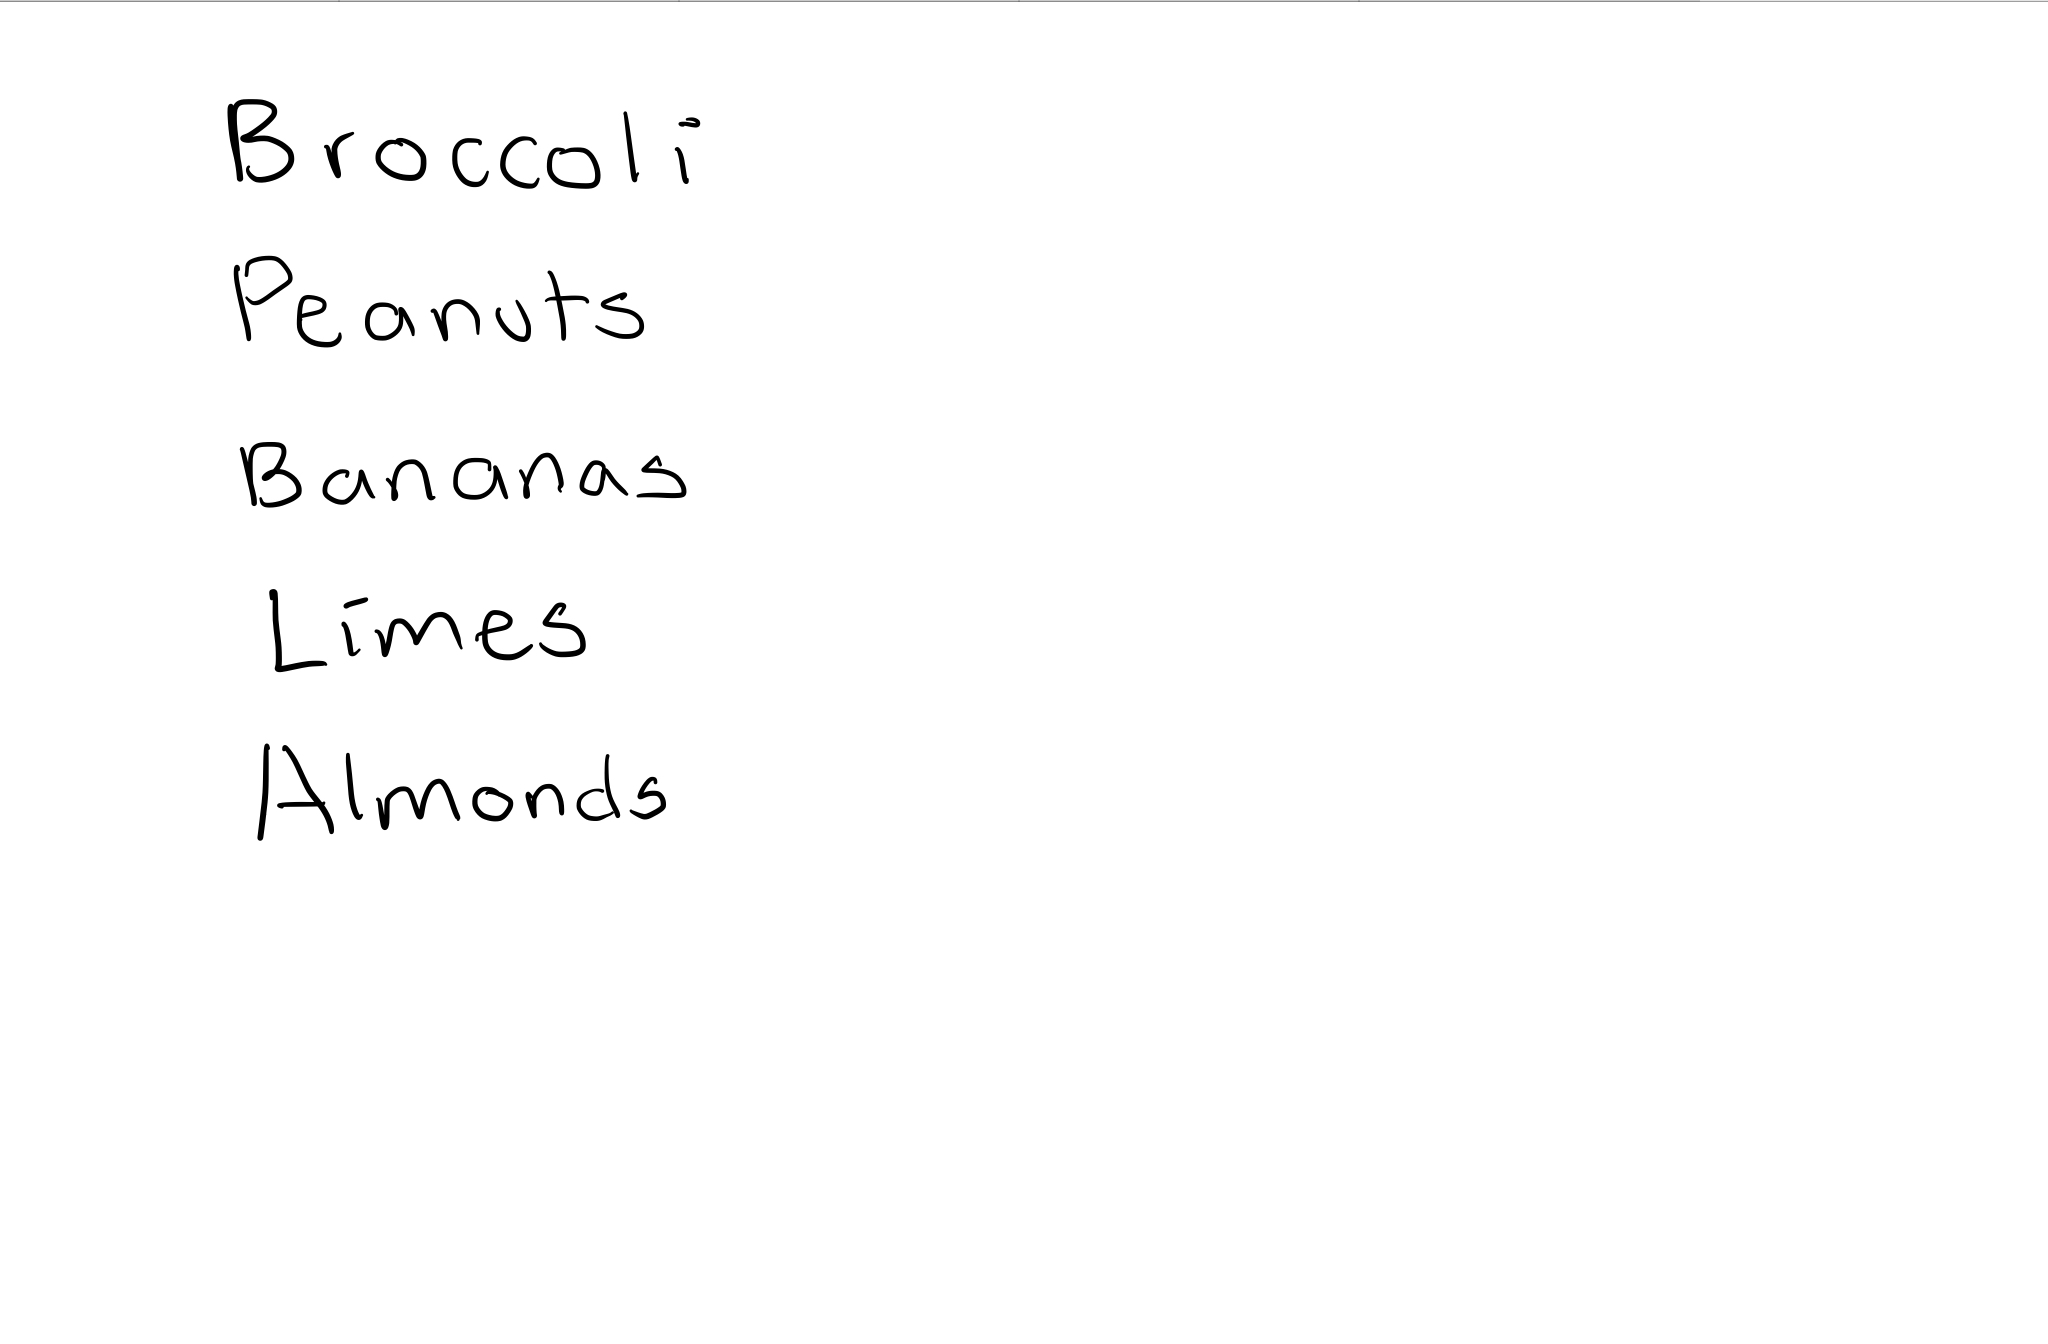 Broccoli
Peanuts
Bananas
Limes
Almonds